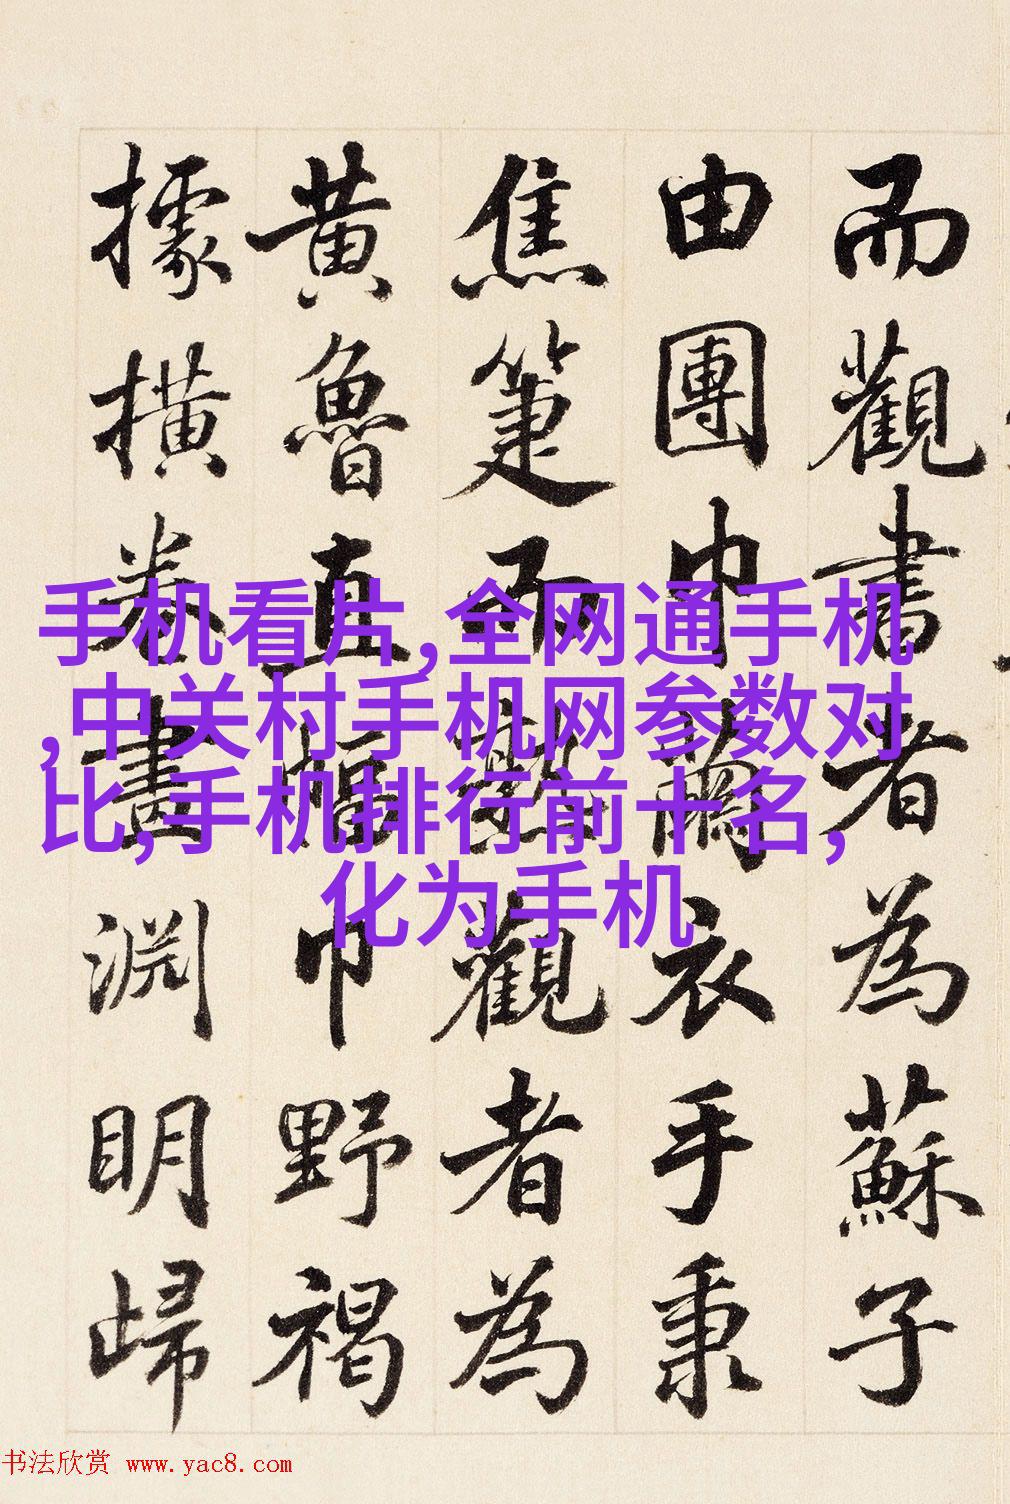 而觀書者為蘇子
由團巾繭衣手秉
焦箑而熟觀者為
黃魯直幅巾野褐
據橫卷畫淵明歸
手机看片,全网通手机
,中关村手机网参数对
比,手机排行前十名,
化为手机
书法欣赏 www.yac8.com